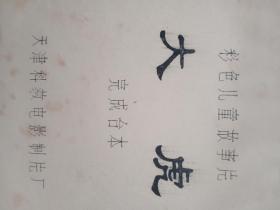 彩色儿童故事片
大虎
完成台本
天津科教电影制片厂